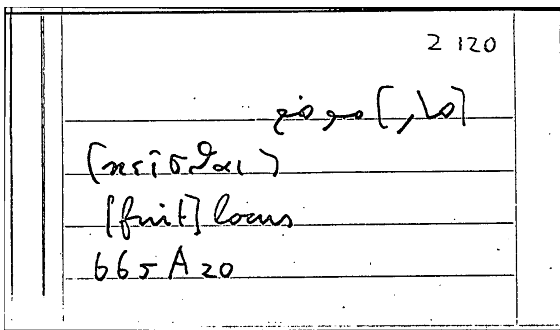 2 120
[ما,] موضع
(κεῖσθαι)
[fuit] locus
665 A 20